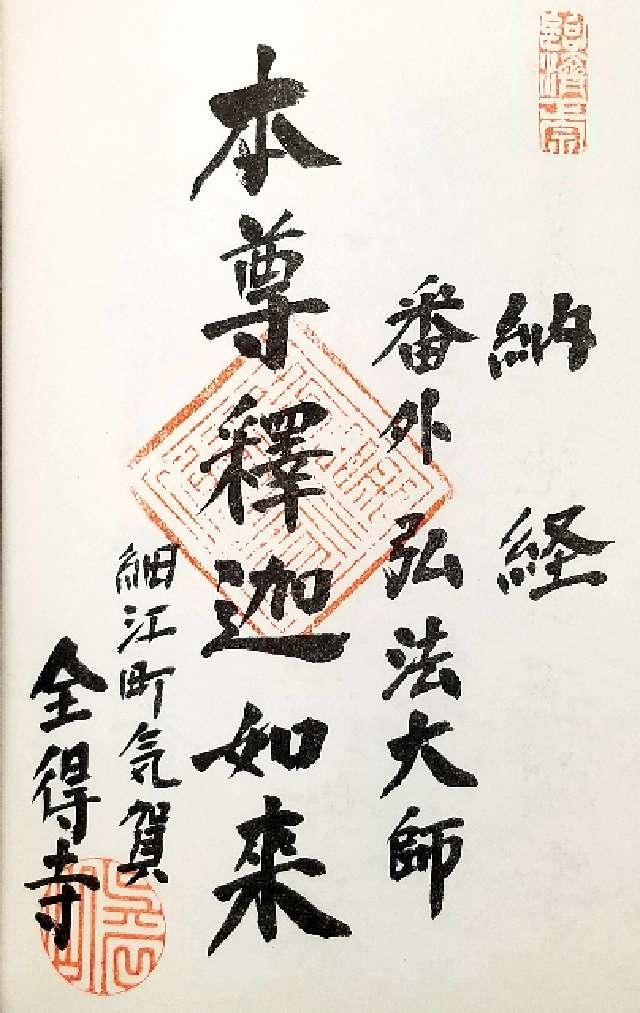 臨済宗
納経
番外弘法大師
本尊釋迦如来
細江町気賀
全得寺